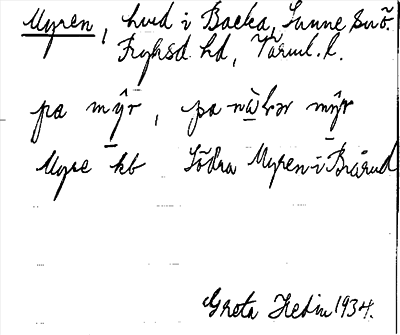 Myren, hvd i Backa, Sunne snö.
Fryksd. hd, Värml. l.
pa mŷr, pa nǜ̱lər mŷr
Myre kb Södra Myren i Brårud
Greta Hedin 1934.